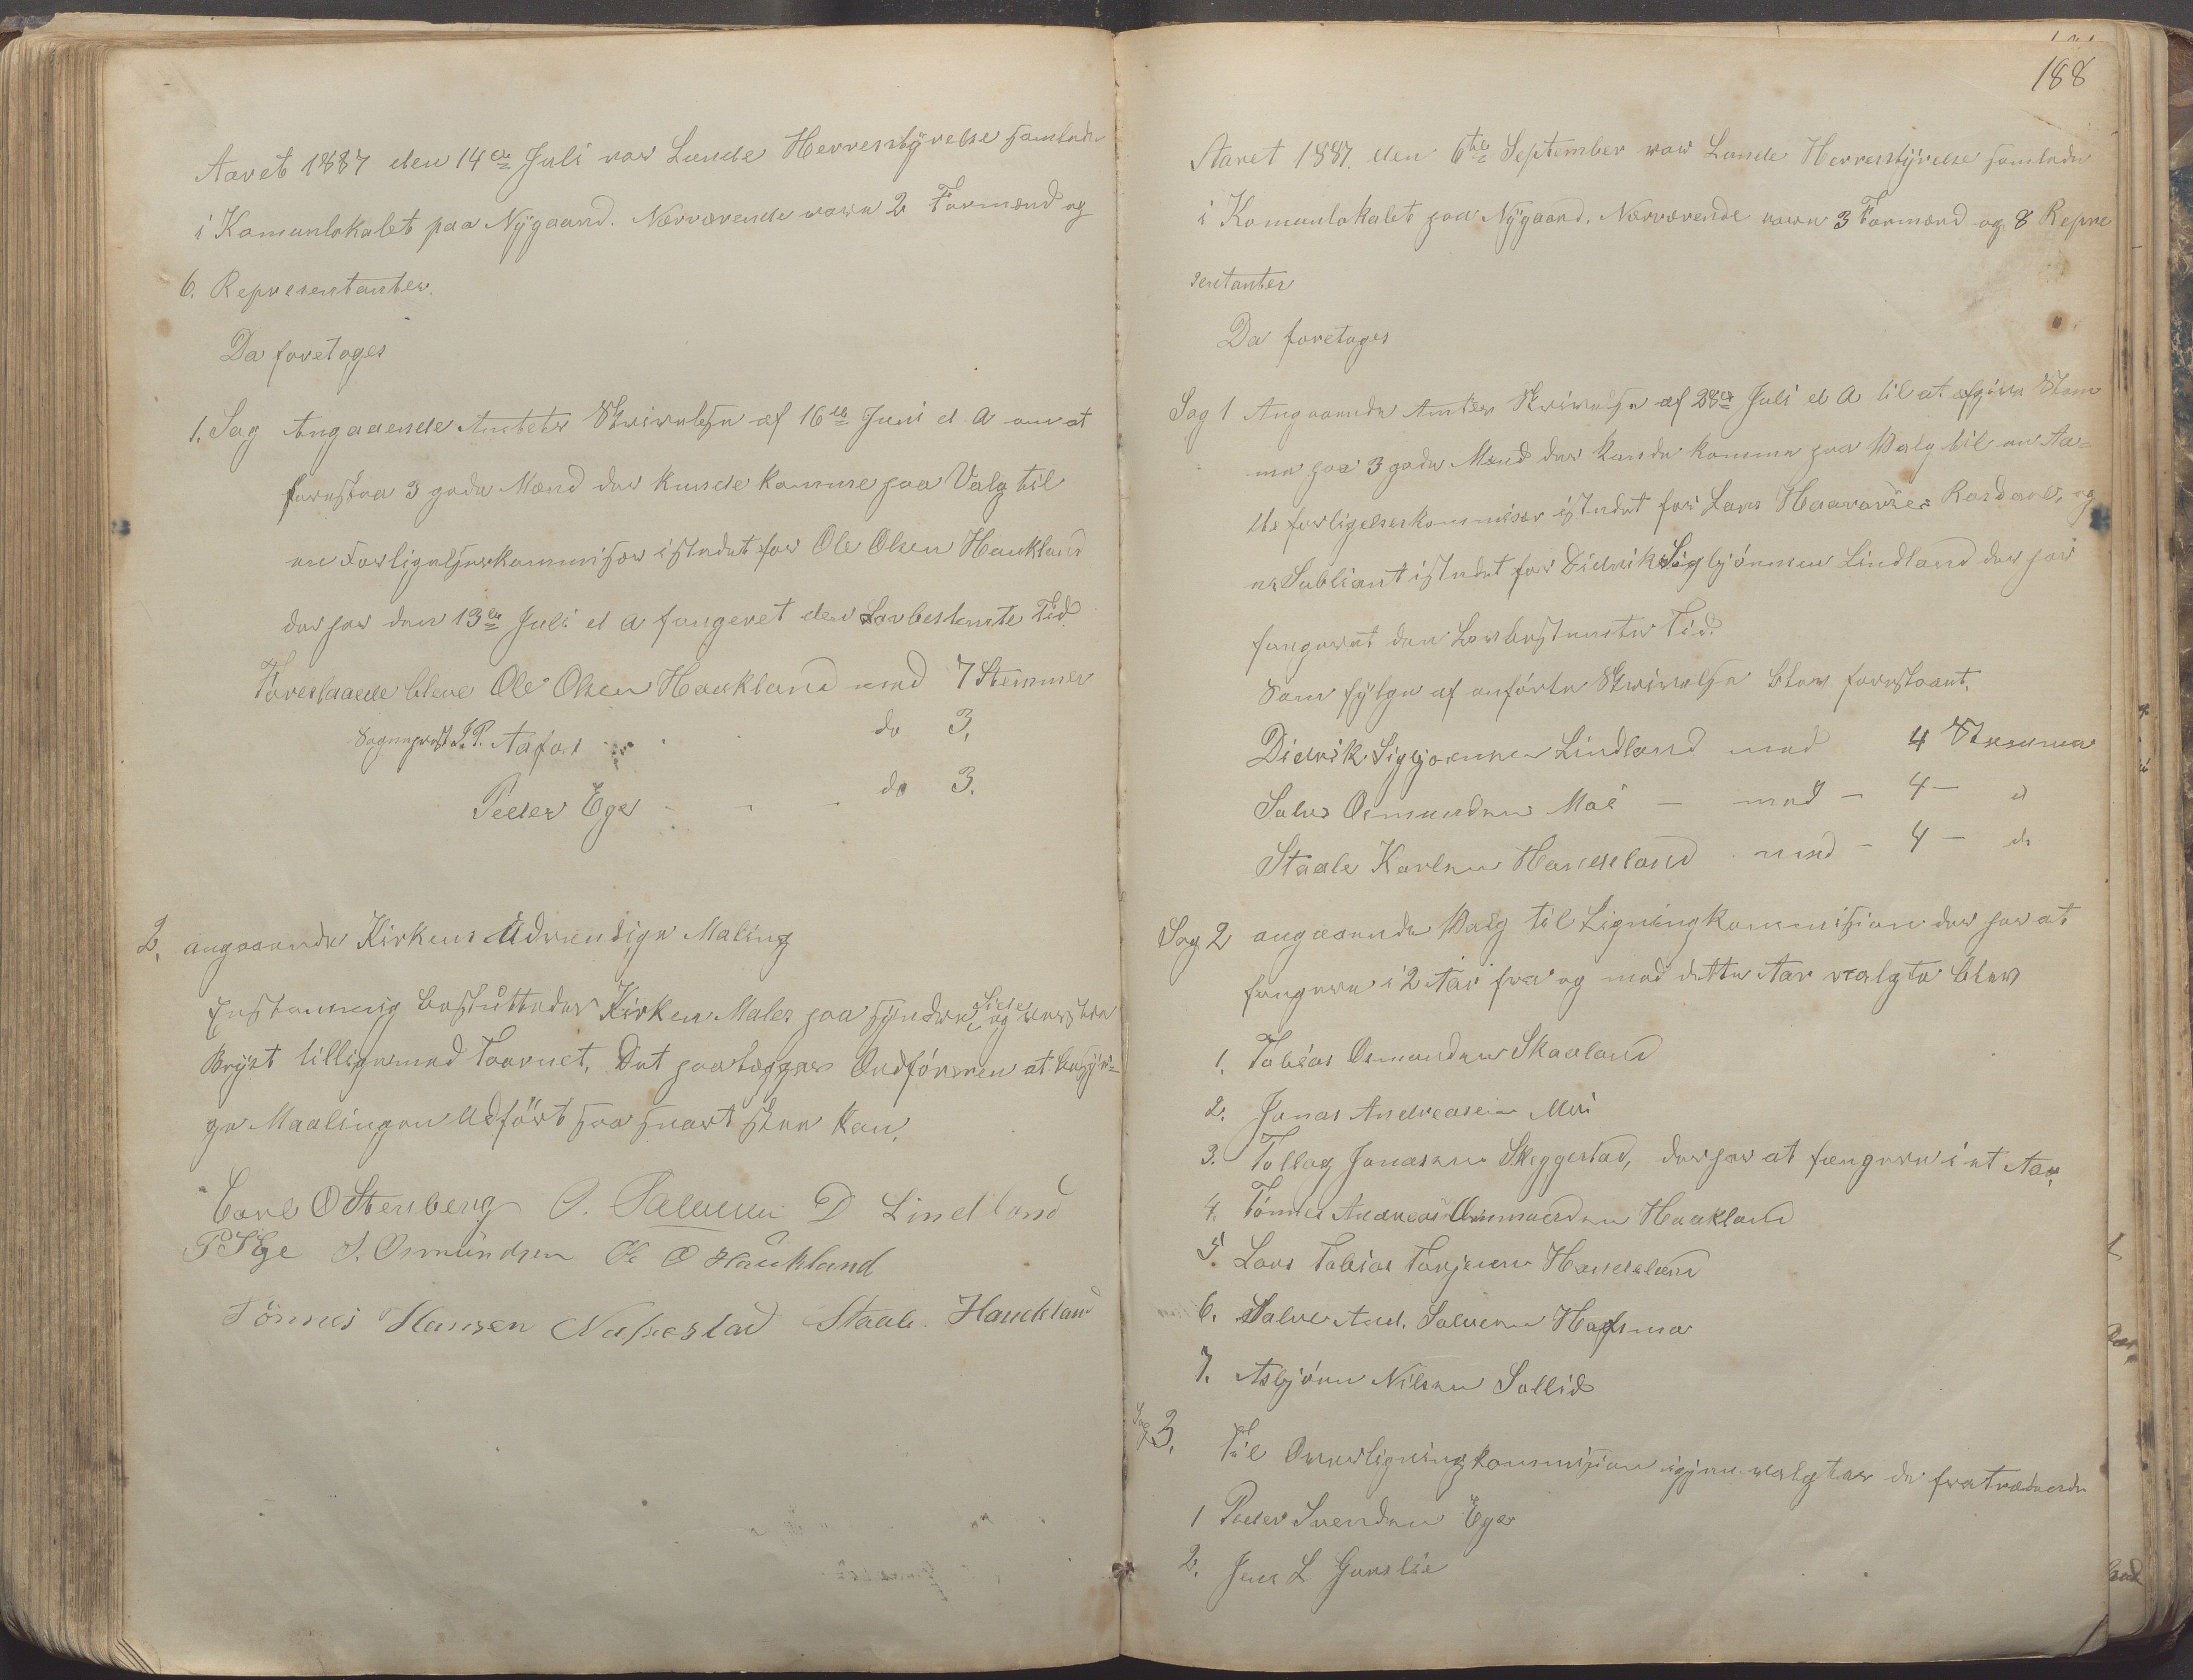 Aaret 1887 den 14de Juli var Lunde Herresstÿrelse samlede
i Komunlokalet paa Nÿgaard. Nærværende vare 2 Formænd og
6. Representanter.
Da foretoges
1. Sag Angaaende Amtets Skrivelse af 16de Juni d A om at
foreslaa 3 gode Mænd der kunde komme paa Valg til
en Forligelseskommisær istedet for Ole Olsen Haukland
der har den 13de Juli d A fungeret den Lovbestemte Tid.
Foreslaaede bleve Ole Olsen Haukland med 7 Stemmer
Sogneprest J. P. Aafos do 3.
Peder Ege do 3.
2. angaaende Kirkens Udvendige Maling
Enstemmig besluttedes Kirken Males paa søndre Side og vestre
Brÿst tilligemed Taarnet. Det paalegges Ordføreren at besør=
ge Maalingen Udført saa snart skee kan.
Carl O Stenberg D Lindland
P S Ege S. Osmundsen Ole O Haukland
Tønnes Hansen Staale Hauckland
188
Aaret 1887. den 6te September var Lunde Herresstÿrelse samlede
i Komunlokalet paa Nÿgaard. Nærværende vare 3 Formænd og 8 Repre
sentanter
Da foretoges
Sag 1 Angaaende Amtes Skrivelse af 28de Juli d A til at afgive Stem
me paa 3 gode Mænd der kunde komme paa Valg til en
forligelseskommisær istedet for Lars Rosdal, og
en Subliant istedet for Didrik Sigbjörnsen Lindland der har
fungeret den Lovbestemte Tid.
Som følge af anførte Skrivelse blev foreslaaet.
Didrik Sigbjørnsen Lindland med 4 Stemmer
Salve Osmundsen Moi – med – 4 – d
Staale Karlsen Haukland med – 4 – do
Sag 2 angaaende Valg til Ligningkommission der har at
fungere i 2 Aar fra og med dette Aar valgte blev
1. Tobias Osmundsen Skaaland
2. Jonas Andreasen Moi
3. Tollag Jonasen Skeggestad, der har at fungere i et Aar,
4. Tønnes Andreas Osmundsen Haukland
5. Lars Tobias Torjesen Haukland
6. Salve And. Salvesen Hafsmo
7. Asbjørn Nilsen Sollid
Sag 3. Til Overligningkommission igjen valgtes de fratrædende
1 Peder Svendsen Ege
2. Jens L Gurslie